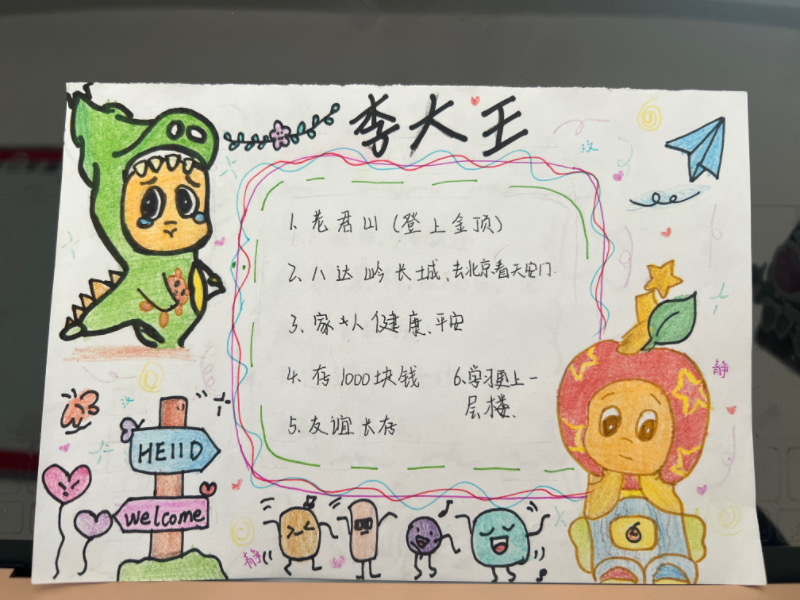 李大王
1. 老君山（登上金顶）
2. 八达岭长城、去北京看天安门.
3. 家人健康、平安
4. 存1000块钱
6. 学习更上一
层楼.
5. 友谊长存
HEllO
welcome
静
静